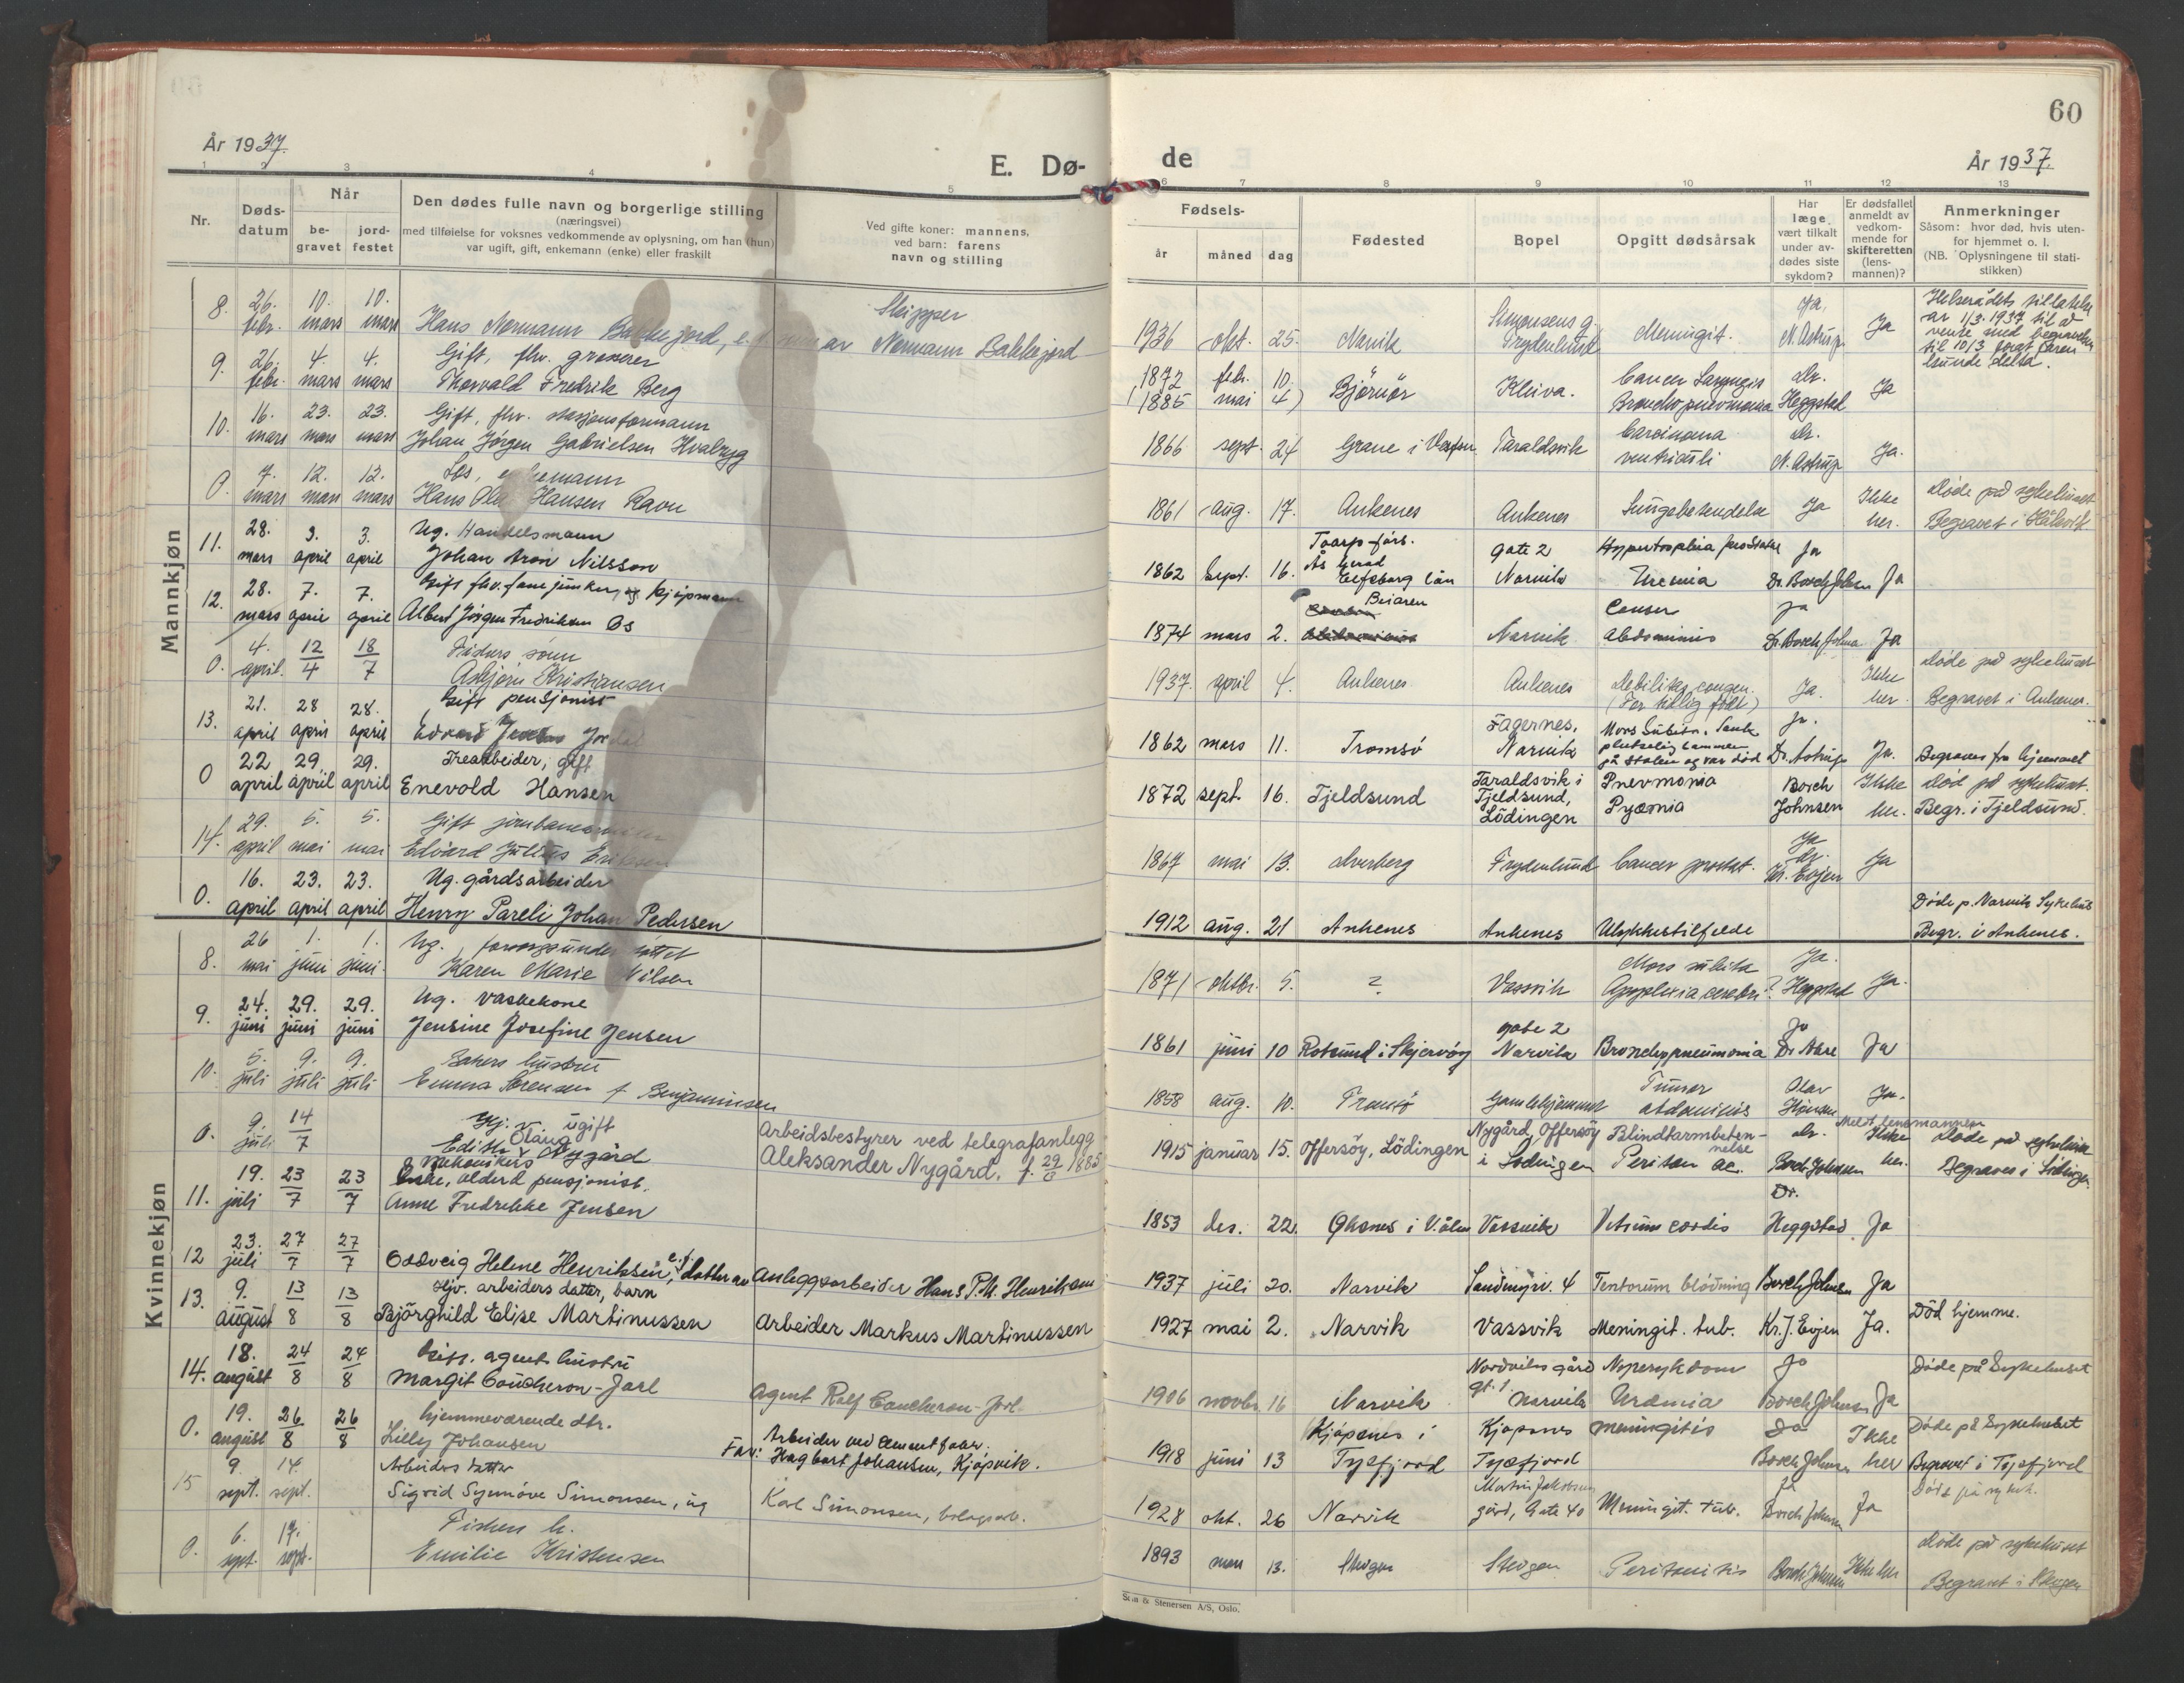 60
År 1937.
E. Dø-
de
År 1937.
1 2 3 4 5 6 7 8 9 10 11 12 13
Nr.
Døds-
datum
Når
be-
gravet
jord-
festet
Den dødes fulle navn og borgerlige stilling
(næringsvei)
med tilføielse for voksnes vedkommende av oplysning, om han (hun)
var ugift, gift, enkemann (enke) eller fraskilt
Ved gifte koner: mannens,
ved barn: farens
navn og stilling
Fødsels-
år måned dag
Fødested
Bopel
Opgitt dødsårsak
Har
læge
vært tilkalt
under av-
dødes siste
sykdom?
Er dødsfallet
anmeldt av
vedkom-
mende for
skifteretten
(lens-
mannen)?
Anmerkninger
Såsom: hvor død, hvis uten-
for hjemmet o. l.
(NB. Oplysningene til stati-
stikken)
Mannkjøn
8. 26. febr. 10. mars 10. mars
Hans Normann Bakkejord, av
Skipper
Normann Bakkejord
1936 okt. 25. Narvik
Frydenlund Meningit. Ja, N. Astrup Ja
av 1/3 1937 til å
vente med begravelsen
til 10/3 da faren
kunde delta.
9. 26. febr. 4. mars 4. mars
Gift, fhv. gruvearb.
Thorvald Fredrik Berg
1872 febr. 10.
(1885 mai 4)
Bjørnør Kleiva. Cancer Laryngis
Bronchopnevmonia dr. Heggstad Ja
10. 16. mars 23. mars 23. mars
Gift, fhv. stasjonsformann
Johan Jörgen Gabrielsen Hvalryg
1866 sept. 24 Grane i Vefsn Taraldsvik Carcinoma
ventriculi dr. N. Astrup Ja.
0. 7. mars 12. mars 12. mars
enkemann
Hans Hansen Ravn
1861 aug. 17. Ankenes Ankenes Lungebetendelse Ja Ikke her.
Döde på sykehuset
Begravet i Håkvik
11. 28. mars 3. april 3. april
Ug. Handelsmann
Johan Aron Nilsson
1862 Sept. 16.
Toarp förs.
Ås herad
Elfsborg län
gate 2
Narvik
Hypertrophia prostatae
Uremia
Ja
Dr. Borch Johnsen Ja
12. 28. mars 7. april 7. april
Gift fhv. fanejunker og kjøpmann
Albert Jörgen Fredriksen Os
1874 mars 2. Beiaren
Narvik Cancer
abdominis Ja
Dr. Borch Johnsen Ja
0. 4. april. 12/4 18/7
Fiskers sönn
Asbjörn Kristiansen
1937. april 4. Ankenes Ankenes Debilitas congen.
(For tidlig födt) Ja. Ikke her.
Döde på sykehuset
Begravet i Ankenes.
13. 21. april 28 april 28. april
Gift pensjonist
Edvard
1862 mars 11. Tromsö Fagernes,
Narvik Mors Subita. Sank
plutselig sammen
på stolen og var död Ja.
Dr. Astrup Ja. Begraves fra hjemmet
0 22 april 29. april 29. april
Trearbeider, gift
Enevold Hansen
1872 sept. 16. Tjeldsund Taraldsvik i
Tjeldsund,
Lödingen
Pnevmonia
Pyæmia
Borch
Johnsen
Ikke
her.
död på sykehuset.
Begr. i Tjeldsund.
14. 29. april 5. mai 5. mai
Gift
Edvard Julius Eriksen
1867 mai 13. Frydenlund Cancer prostat. Ja
dr.
Kr. Evjen Ja
0. 16. april 23. april 23. april
Ug. gårdsarbeider
Henry Pareli Johan Pedersen
1912 aug. 21 Ankenes Ankenes Ulykkestilfelde
Döde p. Narvik Sykehus
Begr. i Ankenes.
Kvinnekjøn
8. 26 mai 1. juni 1. juni.
Ug., forsorgsunderstöttet
Karen Marie Nilsen
1871 oktbr. 5. ? Vassvik Mors subita
Apoplexia cerebri? Ja.
Heggstad Ja.
9. 24. juni 29. juni 29. juni
Ug. vaskekone
Jensine Josefine Jensen
1861 juni 10 Rotsund i Skjervöy gate 2
Narvik Bronchopneumonia Ja
Dr Aare Ja
10. 5. juli 9. juli 9. juli
Bakers hustru
Emma Sörensen f. Benjaminsen
1858 aug. 10. Tromsö Gamlehjemmet Tumor
abdominis Olav
Hansen Ja.
0. 9. juli 14/7
Hj. v. ugift
Edith Olaug Nygård
Arbeidsbestyrer ved telegrafanlegg
Aleksander Nygård. f. 29/6 1885
1915 januar 15. Offersöy, Lödingen Nygård, Offersöy
i Lödingen Blindtarmbeten-
nelse
Periton ac. dr.
Borch Johnsen
Meldt lensmannen
Ikke her.
döde på sykehuset
Begraves i Lödingen.
11. 19. juli 23/7 23/7
Mekanikers
Enke, alderd. pensjonist.
Anne Fredrikke Jensen
1853 des. 22. Öksnes i V.ålen Vassvik Vitium cordis Dr.
Heggstad. Ja
12 23. juli 27/7 27/7
Oddveig Helene Henriksen, e.f. datter av
Anleggsarbeider Hans P. M. Henriksen
1937 juli 20. Narvik 4 Tentorium blödning Borch Johnsen Ja
13. 9. august 13/8 13/8
Hjv. arbeiders datter, barn
Björghild Elise Martinussen
Arbeider Markus Martinussen
1927 mai 2. Narvik Vassvik Meningit. tub. Kr. J. Evjen Ja. Död hjemme.
14. 18. august 24/8 24/8
Gift. agents hustru
Margit Coucheron-Jarl
Agent Rolf Coucheron-Jarl
1906 novbr. 16 Narvik Nordviks gård
gt. 1. Narvik Nyresykdom
Uræmia Ja
Borch Johnsen Ja Döde på Sykehuset
0. 19. august 26/8 26/8
hjemmeværende dtr.
Lilly Johansen
Arbeider ved cementfabr.
Far: Hagbart Johansen, Kjöpsvik.
1918 juni 13 Kjöpsnes i
Tysfjord Kjöpsnes
Tysfjord meningitis Ja
Borch Johnsen Ikke her
Döde på Sykehuset
Begravet i Tysfjord
15 9. sept. 14. sept.
Arbeiders datter
Sigrid Synnöve Simonsen, ug
Karl Simonsen, bolagsarb.
1928 okt. 26 Narvik Martin Jakobsens
gård, Gate 40 Meningit. tub. Ja
Borch Johnsen Ja Döde på sykeh.
0. 6. sept. 17. sept.
Fiskers h.
Emilie Kristensen
1893 mars 13. Steigen Steigen Peritonitis Borch Johnsen Ikke her
döde på sykehuset
Begravet i Steigen
Sem & Stenersen A/S, Oslo.